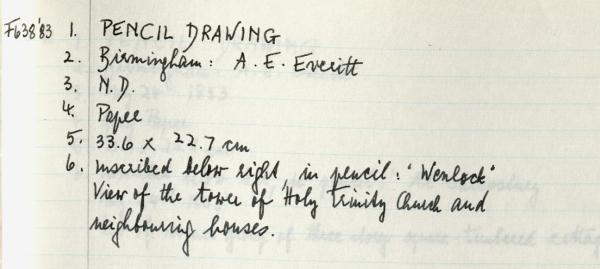 F638'83 1. PENCIL DRAWING
2. Birmingham: A. E. Everitt
3. N.D.
4. Paper
5. 33.6 x 22.7 cm
6. Inscribed below right, in pencil: "Wenlock"
View of the tower of Holy Trinity Church and
neighbouring houses.